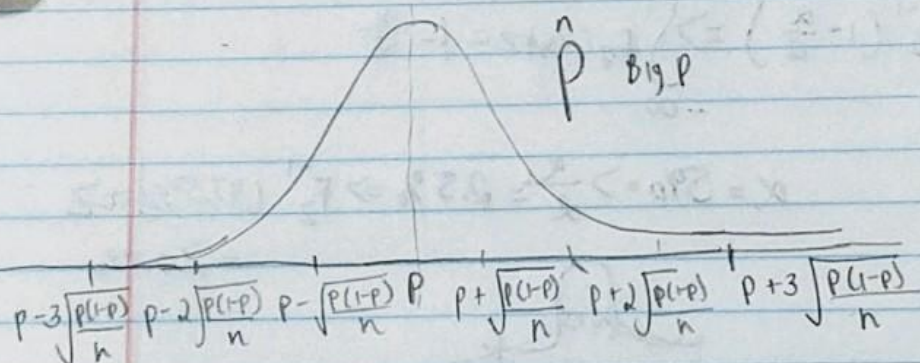 p̂ Big p
p-3√(p(1-p)/n) p-2√(p(1-p)/n) p-√(p(1-p)/n) p p+√(p(1-p)/n) p+2√(p(1-p)/n) p+3√(p(1-p)/n)